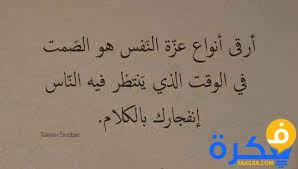 أرقى أنواع عزّة النَفس هو الصَمت
في الوقت الذي يَنتظر فيه النّاس
إنفجارك بالكلام.
فكرة
FAKERA.COM